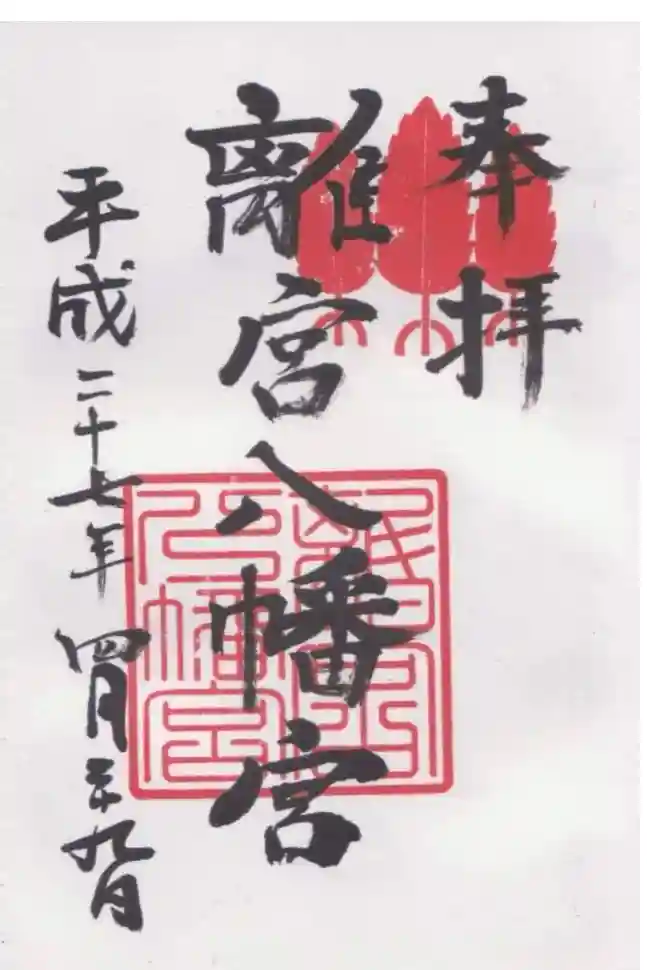 奉拝
離宮八幡宮
平成二十七年四月二十九日
離宮八幡宮